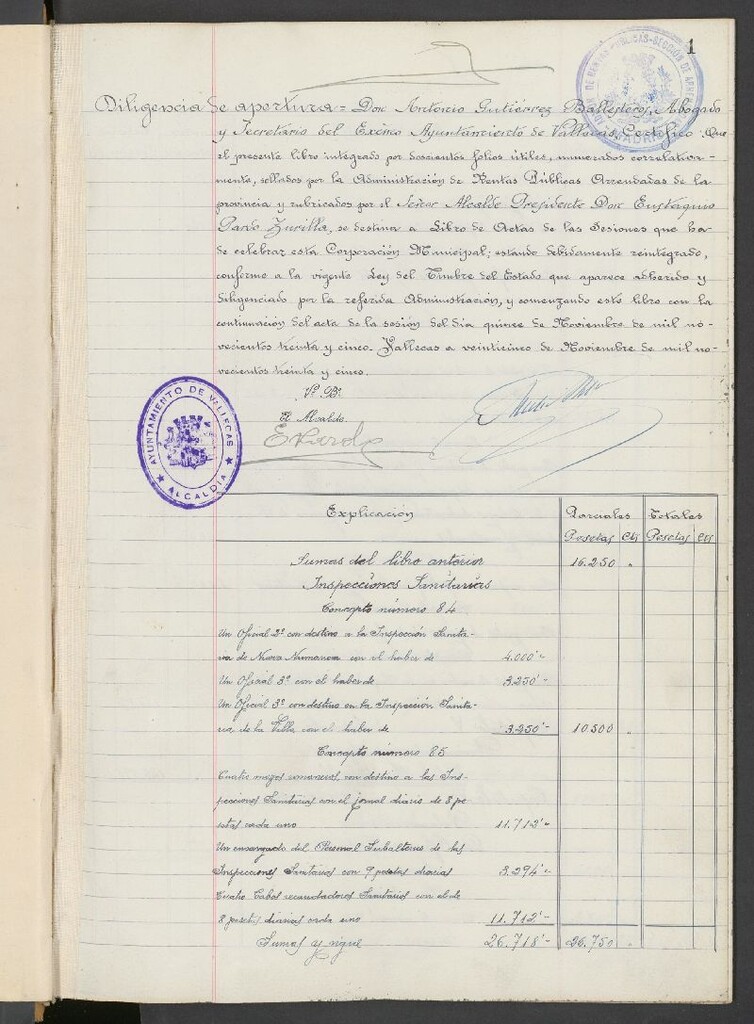 1
Diligencia de apertura = Don Antonio Gutiérrez Ballesteros, Abogado
y Secretario del Excmo Ayuntamiento de Vallecas, Certifico: Que
el presente libro integrado por doscientos folios útiles, numerados correlativa-
mente, sellados por la Administración de Rentas Públicas Arrendadas de la
provincia y rubricados por el Señor Alcalde Presidente Don Eustaquio
Pardo Zurilla, se destina a Libro de Actas de las Sesiones que ha
de celebrar esta Corporación Municipal; estando debidamente reintegrado,
conforme a la vigente Ley del Timbre del Estado que aparece adherido y
diligenciado por la referida Administración, y comenzando este libro con la
continuación del acta de la sesión del día quince de Noviembre de mil no-
vecientos treinta y cinco. Vallecas a veinticinco de Noviembre de mil no-
vecientos treinta y cinco.
Vº Bº
El Alcalde.
AYUNTAMIENTO DE VALLECAS
ALCALDIA
Explicación Parciales Totales
Pesetas Cts Pesetas Cts
Sumas del libro anterior 16.250 "
Inspecciones Sanitarias
Concepto número 84
Un Oficial 2º con destino a la Inspección Sanita-
ria de Nueva Numancia con el haber de 4.000'-
Un Oficial 3º con el haber de 3.250'-
Un Oficial 3º con destino en la Inspección Sanita-
ria, de la Villa con el haber de 3.250'- 10.500 "
Concepto número 85
Cuatro mozos romaneros, con destino a las Ins-
pecciones Sanitarias con el jornal diario de 8 pe-
setas cada uno 11.712'-
Un encargado del Personal Subalterno de las
Inspecciones Sanitarias con 9 pesetas diarias 3.294'-
Cuatro Cabos recaudadores Sanitarios con el de
8 pesetas diarias cada uno 11.712'-
Sumas y sigue 26.718'- 26.750 "